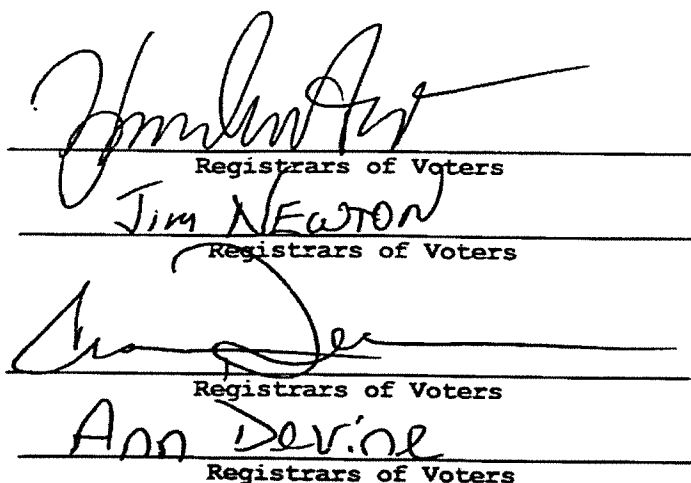 Registrars of Voters
Jim NEWTON
Registrars of Voters
Registrars of Voters
Ann Devine
Registrars of Voters